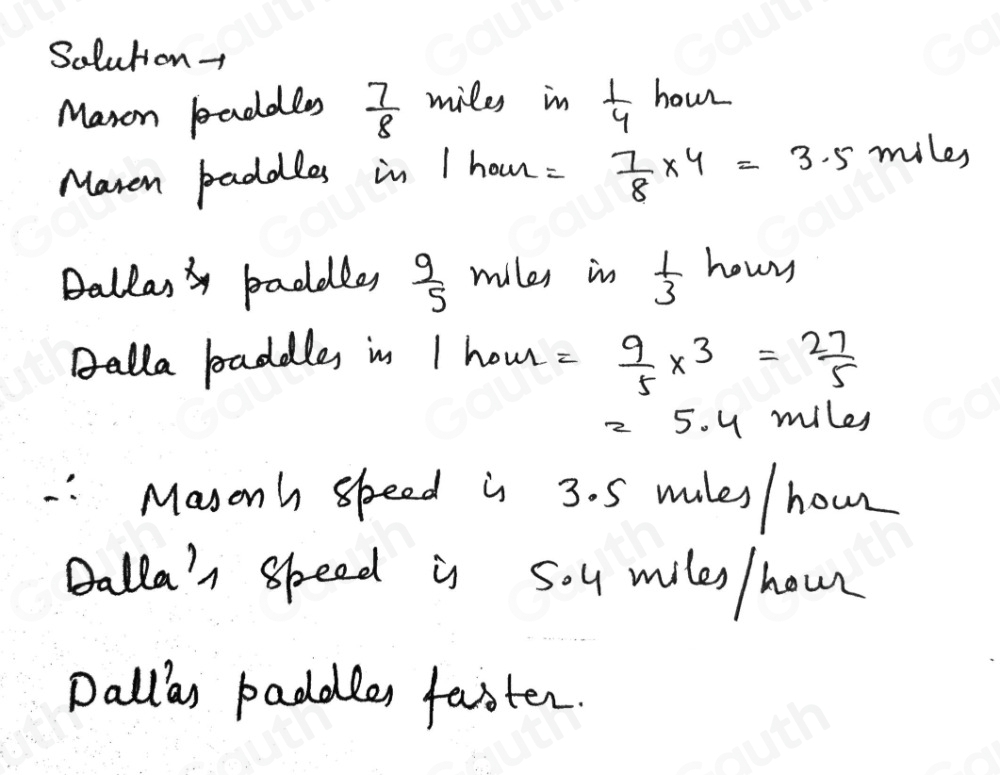 Solution →
Mason paddles 7/8 miles in 1/4 hour
Mason paddles in 1 hour = 7/8 x 4 = 3.5 miles
Dallas paddles 9/5 miles in 1/3 hours
Dalla paddles in 1 hour = 9/5 x 3 = 27/5
= 5.4 miles
∴ Mason's speed is 3.5 miles/hour
Dalla's speed is 5.4 miles/hour
Dall'as paddles faster.